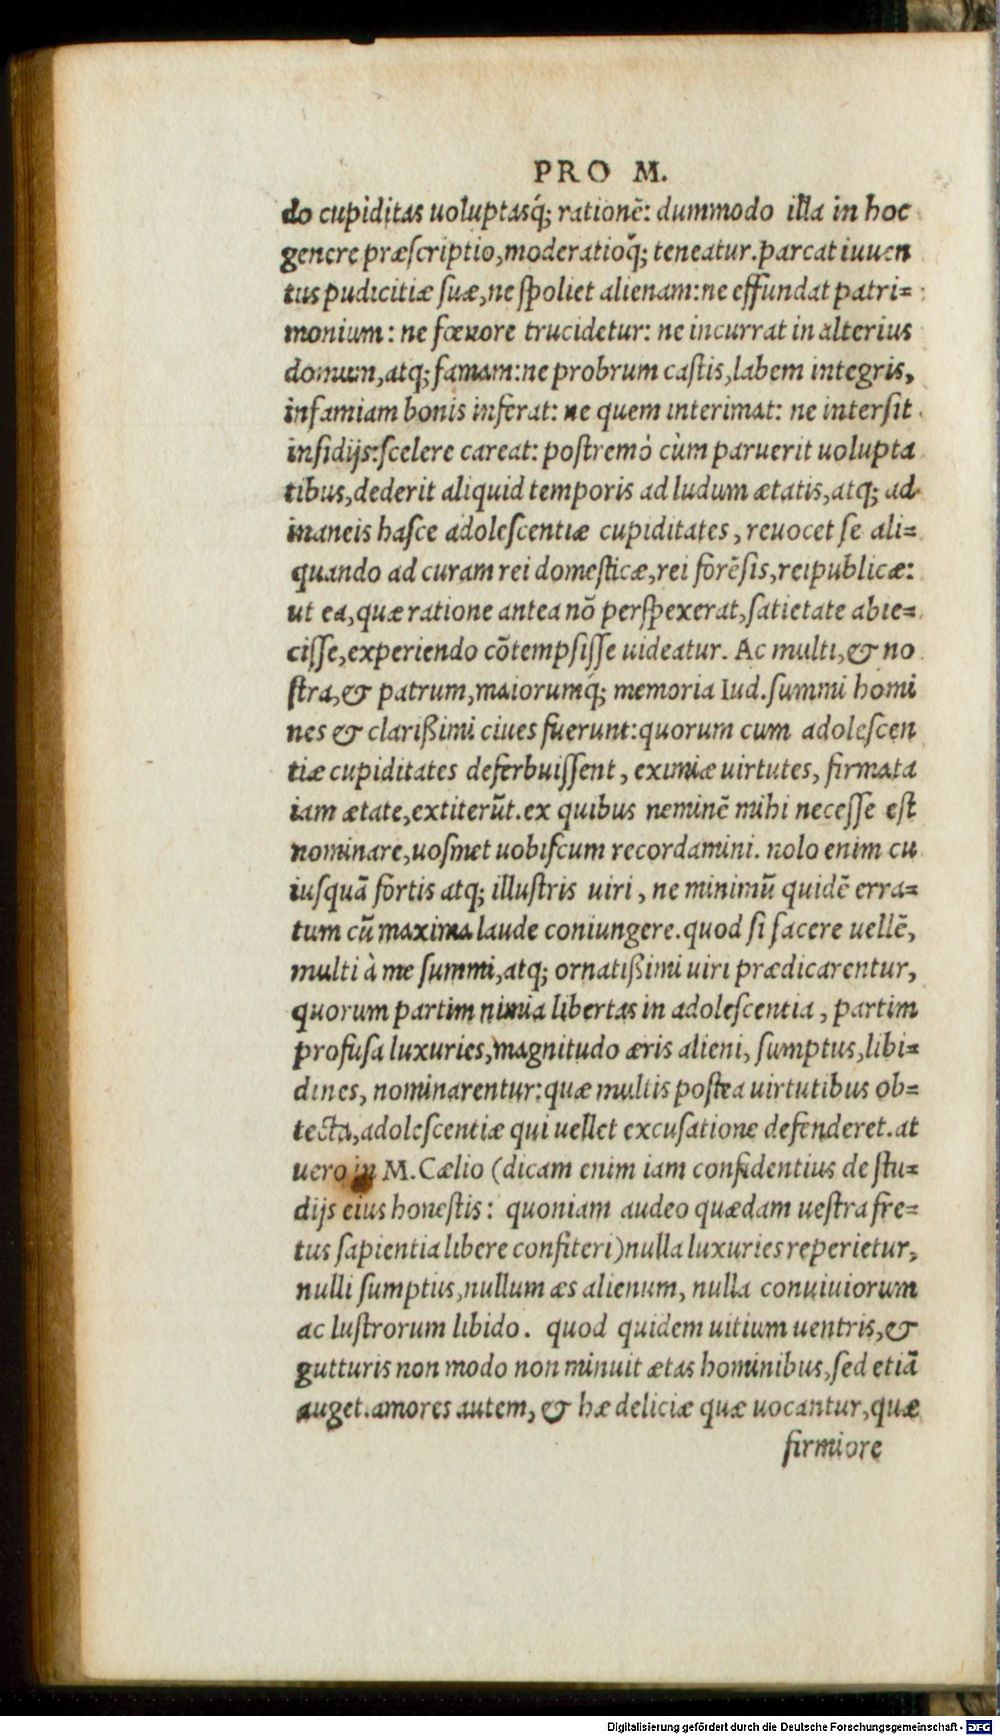 PRO M.
do cupiditas uoluptasq́; rationē: dummodo illa in hoc
genere præscriptio, moderatioq́; teneatur. parcat iuuen
tus pudicitiæ suæ, ne spoliet alienam: ne effundat patri=
monium: ne fœnore trucidetur: ne incurrat in alterius
domum, atq; famam: ne probrum castis, labem integris,
infamiam bonis inferat: ne quem interimat: ne intersit
insidijs: scelere careat: postremò cùm paruerit uolupta
tibus, dederit aliquid temporis ad ludum ætatis, atq; ad
inaneis hasce adolescentiæ cupiditates, reuocet se ali=
quando ad curam rei domesticæ, rei forēsis, reipublicæ:
ut ea, quæ ratione antea nō perspexerat, satietate abie=
cisse, experiendo cōtempsisse uideatur. Ac multi, & no
stra, & patrum, maiorumq́; memoria Iud. summi homi
nes & clarißimi ciues fuerunt: quorum cum adolescen
tiæ cupiditates deferbuissent, eximiæ uirtutes, firmata
iam ætate, extiterūt. ex quibus neminē mihi necesse est
nominare, uosmet uobiscum recordamini. nolo enim cu
iusquā fortis atq; illustris uiri, ne minimū quidē erra=
tum cū maxima laude coniungere. quod si facere uellē,
multi à me summi, atq; ornatißimi uiri prædicarentur,
quorum partim nimia libertas in adolescentia, partim
profusa luxuries, magnitudo æris alieni, sumptus, libi=
dines, nominarentur: quæ multis postea uirtutibus ob=
tecta, adolescentiæ qui uellet excusatione defenderet. at
uero in M. Cælio (dicam enim iam confidentius de stu=
dijs eius honestis: quoniam audeo quædam uestra fre=
tus sapientia libere confiteri) nulla luxuries reperietur,
nulli sumptus, nullum æs alienum, nulla conuiuiorum
ac lustrorum libido. quod quidem uitium uentris, &
gutturis non modo non minuit ætas hominibus, sed etiā
auget. amores autem, & hæ deliciæ quæ uocantur, quæ
firmiore
Digitalisierung gefördert durch die Deutsche Forschungsgemeinschaft - DFG